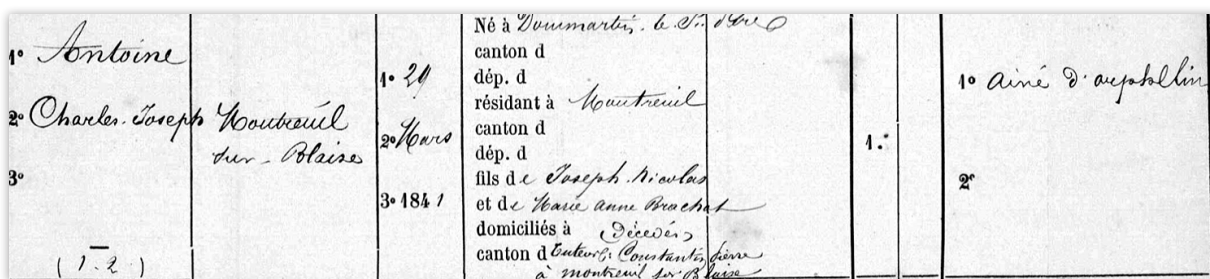 1º Antoine
2º Charles. Joseph
3º
(1.2)
Montreuil
sur-Blaise
1º 29
2º Mars
3º 1841
Né à Dommartin. le St. Père
canton d
dép. d
résidant à Montreuil
canton d
dép. d
fils de Joseph. Nicolas
et de Marie anne Brachat
domiciliés à Décédés
canton d tuteur: Constantin pierre
à montreuil sur Blaise
1.
1º ainé d'orphellin
2º